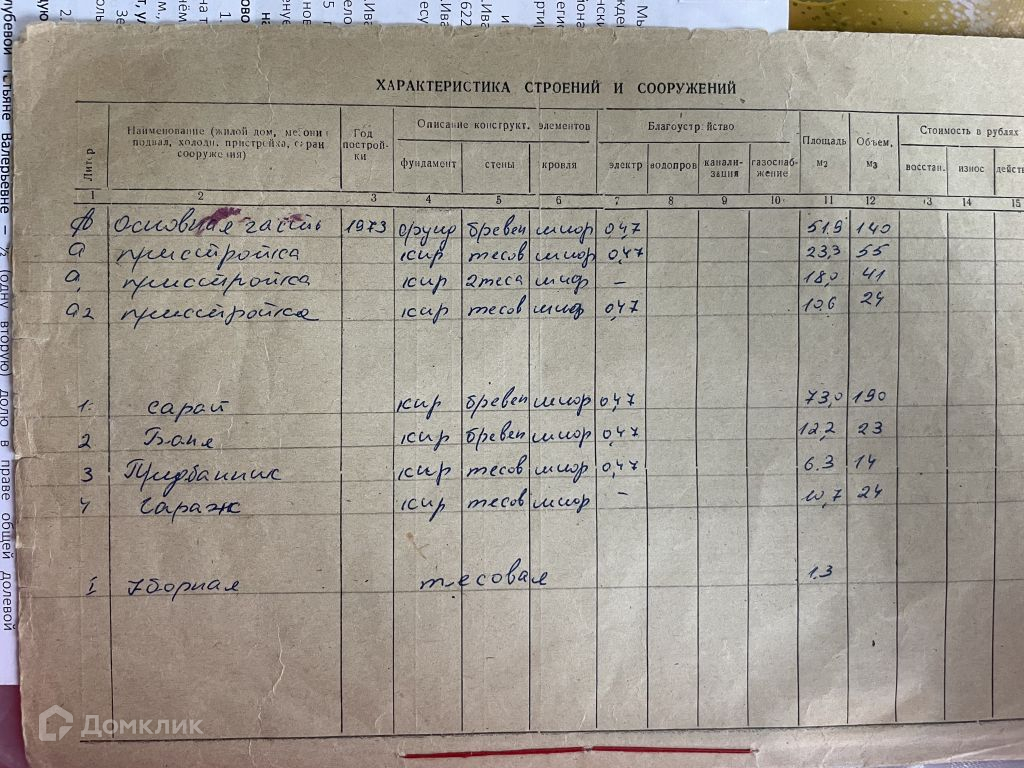 ХАРАКТЕРИСТИКА СТРОЕНИЙ И СООРУЖЕНИЙ
Литер
Наименование (жилой дом, мезонин
подвал, холодн. пристройка, сараи
сооружения)
Год
построй-
ки
Описание конструкт. элементов
фундамент стены кровля
Благоустройство
электр водопров канали-
зация газоснаб-
жение
Площадь
м2
Объем,
м3
Стоимость в рублях
восстан. износ действ
1 2 3 4 5 6 7 8 9 10 11 12 13 14 15
Основная часть 1973 бревен шиор 0,47 51,9 140
а пристройка кир тесов шиор 0,47 23,3 55
а, пристройка кир 2теса шиф – 18,0 41
а2 пристройка кир тесов шиф 0,47 10,6 24
1. сарай кир бревен шиор 0,47 73,0 190
2 Баня кир бревен шиор 0,47 12,2 23
3 Придбанник кир тесов шиор 0,47 6.3 14
4 Гараж кир тесов шиор – 10,7 24
I Уборная тесовая 1.3
Домклик
лубевой Татьяне Валерьевне – ½ (одну вторую) долю в праве общей долевой